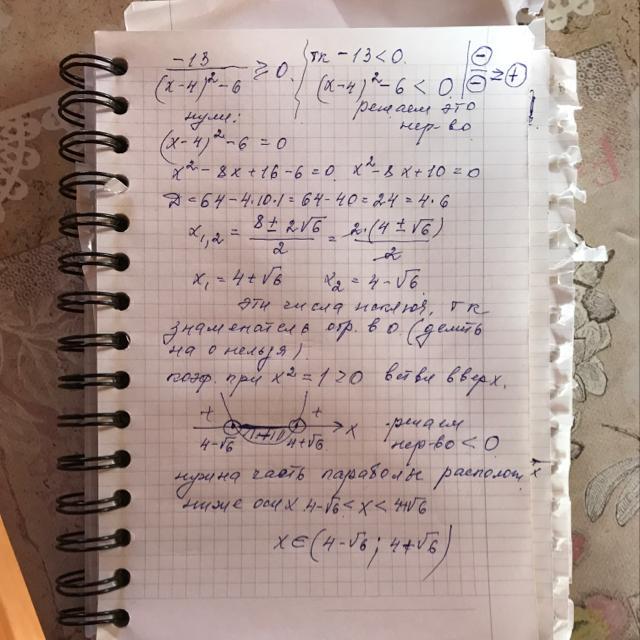 -13/((x-4)²-6) ≥ 0. тк -13<0. (x-4)²-6<0 ⊖/⊖ ≥ ⊕
нули: решаем это
нер-во
(x-4)²-6=0
x²-8x+16-6=0. x²-8x+10=0
D=64-4·10·1=64-40=24=4·6
x₁,₂ = (8±2√6)/2 = 2·(4±√6)/2
x₁=4+√6 x₂=4-√6
эти числа исключ, тк
знаменатель обр. в 0 (делить
на 0 нельзя)
коэф. при x²=1>0 ветви вверх.
+ + x решаем
4-√6 4+√6 нер-во <0
нужна часть параболы располож
ниже оси x 4-√6<x<4+√6
x∈(4-√6; 4+√6)